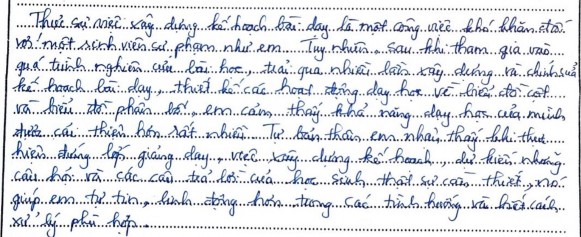 Thực sự việc xây dựng kế hoạch bài dạy là một công việc khó khăn đối
với một sinh viên sư phạm như em. Tuy nhiên, sau khi tham gia vào
quá trình nghiên cứu bài học, trải qua nhiều lần xây dựng và chỉnh sửa
kế hoạch bài dạy, thiết kế các hoạt động dạy học về biểu đồ cột
và biểu đồ phân bố, em cảm thấy khả năng dạy học của mình
được cải thiện hơn rất nhiều. Tự bản thân em nhận thấy khi thực
hiện đứng lớp giảng dạy, việc xây dựng kế hoạch, dự kiến những
câu hỏi và các câu trả lời của học sinh thật sự cần thiết, nó
giúp em tự tin, linh động hơn trong các tình huống và biết cách
xử lý phù hợp.